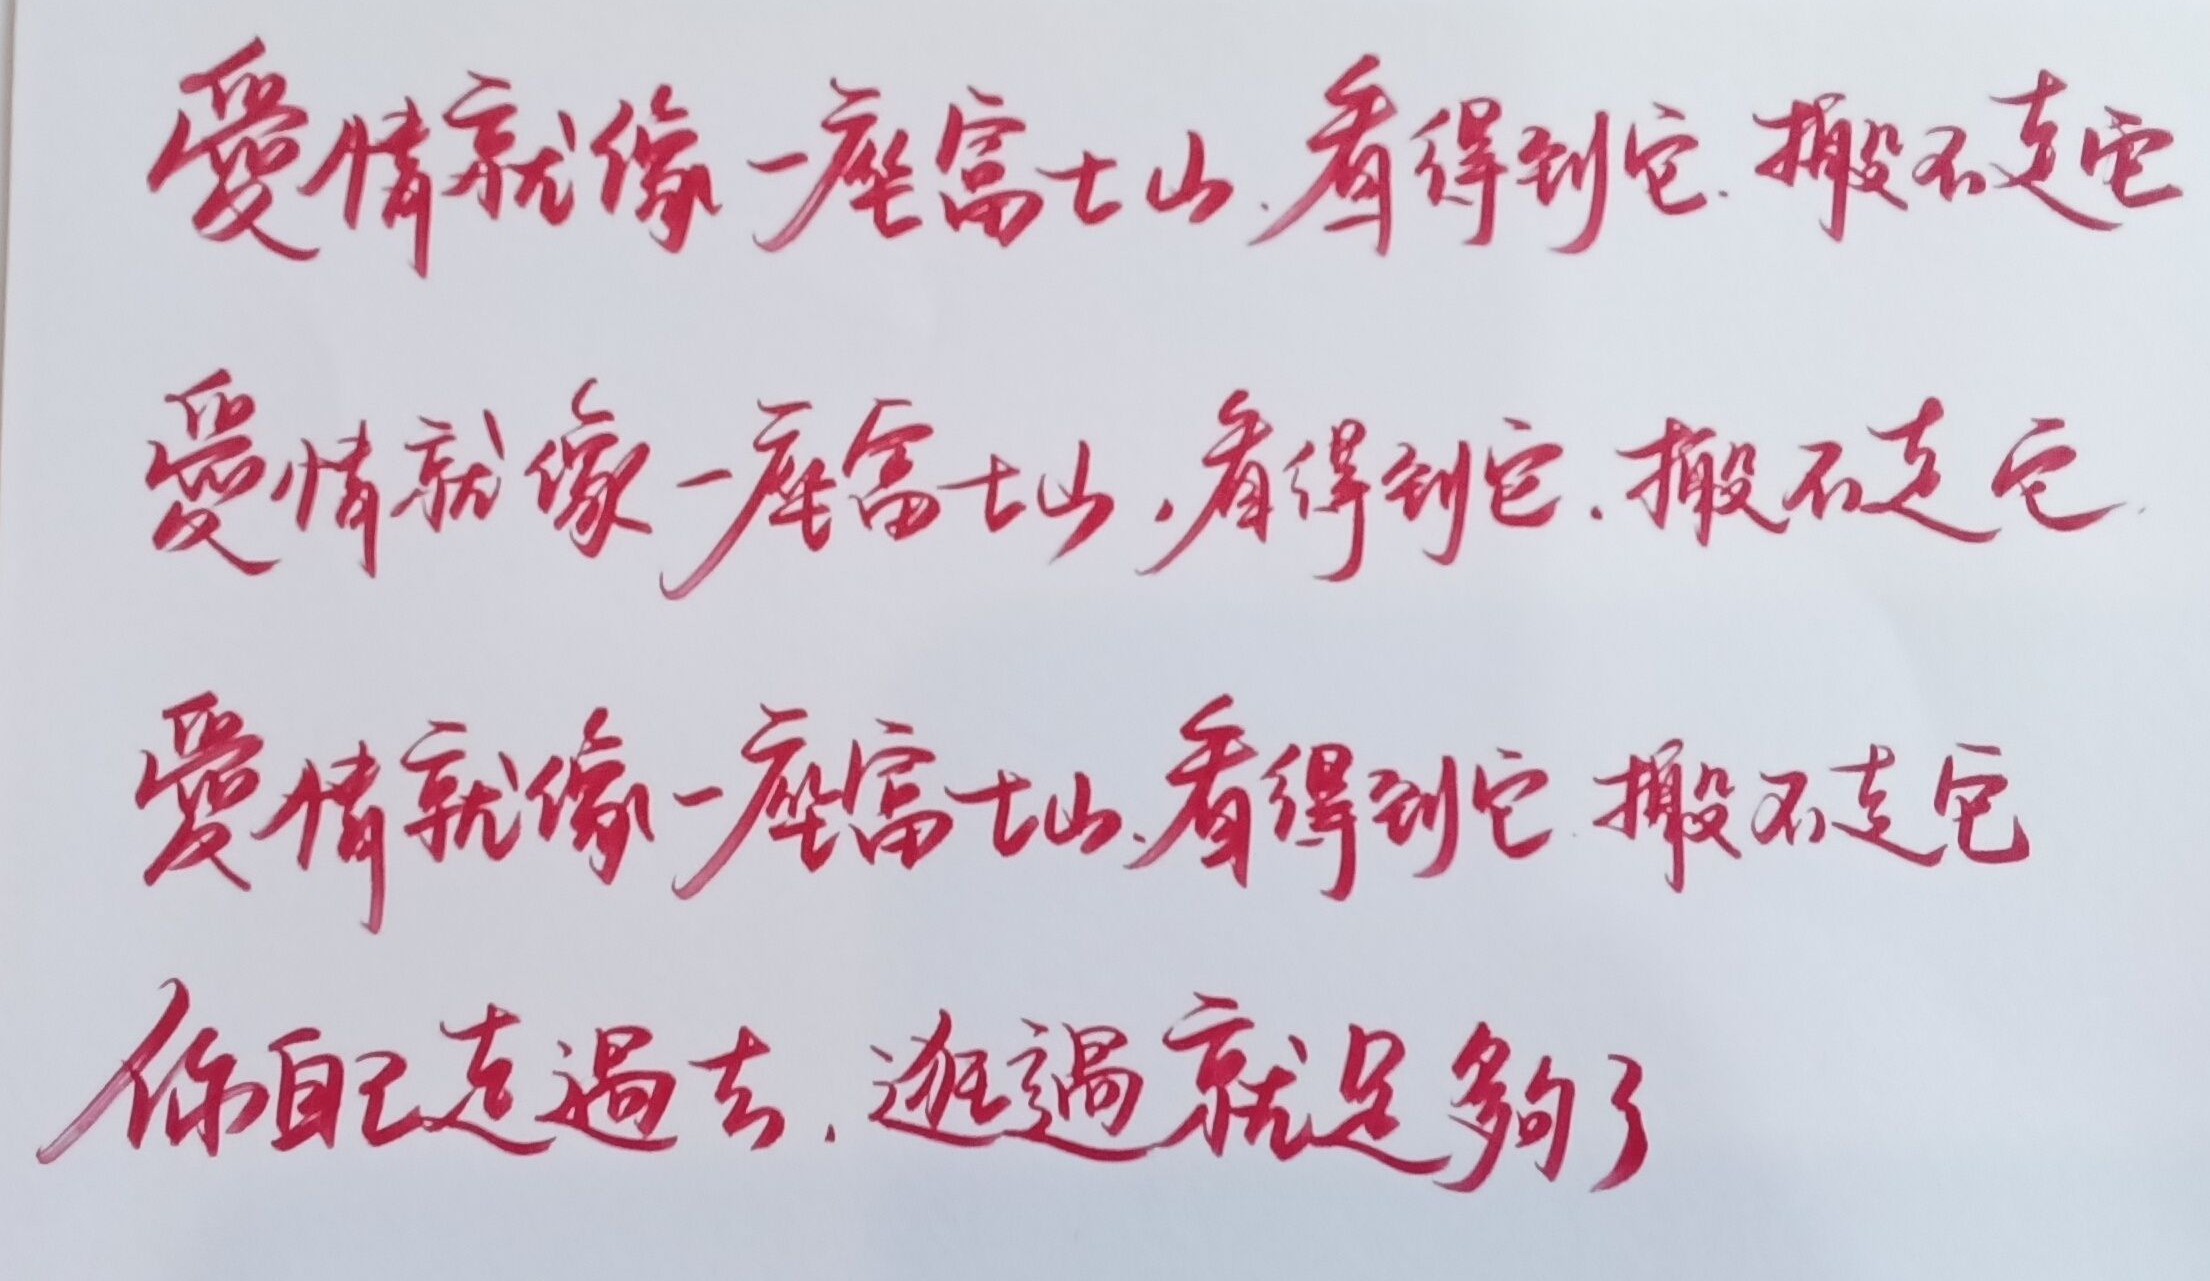 愛情就像一座富士山.看得到它.搬不走它
愛情就像一座富士山,看得到它.搬不走它.
愛情就像一座富士山.看得到它.搬不走它
你自己走過去.逛過就足夠了